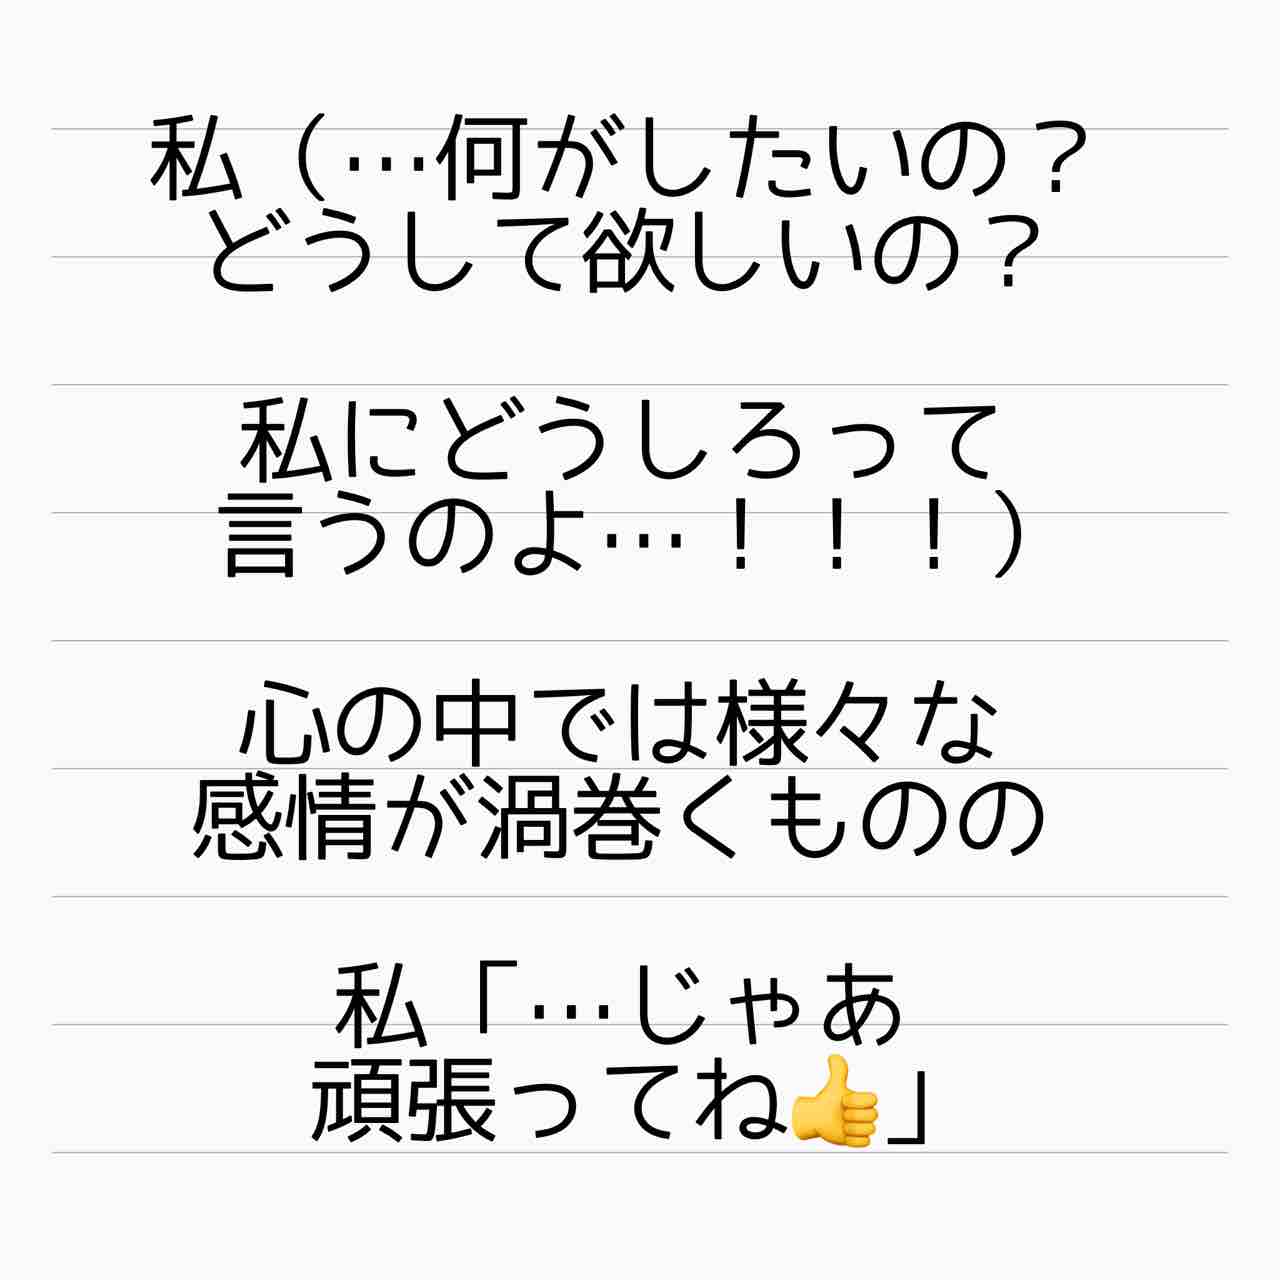 私（…何がしたいの？
どうして欲しいの？
私にどうしろって
言うのよ…！！！）
心の中では様々な
感情が渦巻くものの
私「…じゃあ
頑張ってね👍」